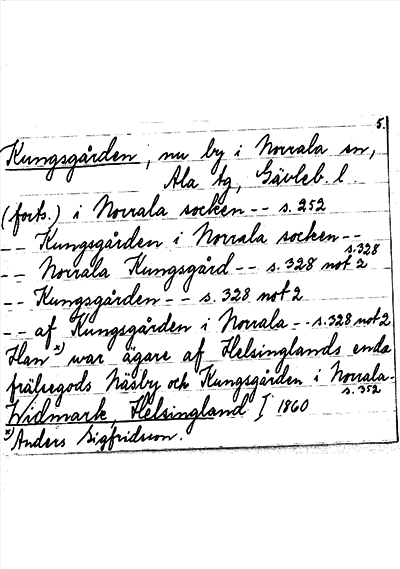 5.
Kungsgården, nu by i Norrala sn,
Ala tg, Gävleb. l
(forts.) i Norrala socken -- s. 252
-- Kungsgården i Norrala socken --
s. 328
-- Norrala Kungsgård -- s. 328 not 2
-- Kungsgården -- s. 328 not 2
-- af Kungsgården i Norrala -- s. 328 not 2
Han x) war ägare af Helsinglands enda
frälsegods Näsby och Kungsgården i Norrala -
s. 352
Widmark, Helsingland I 1860
x) Anders Sigfridsson.